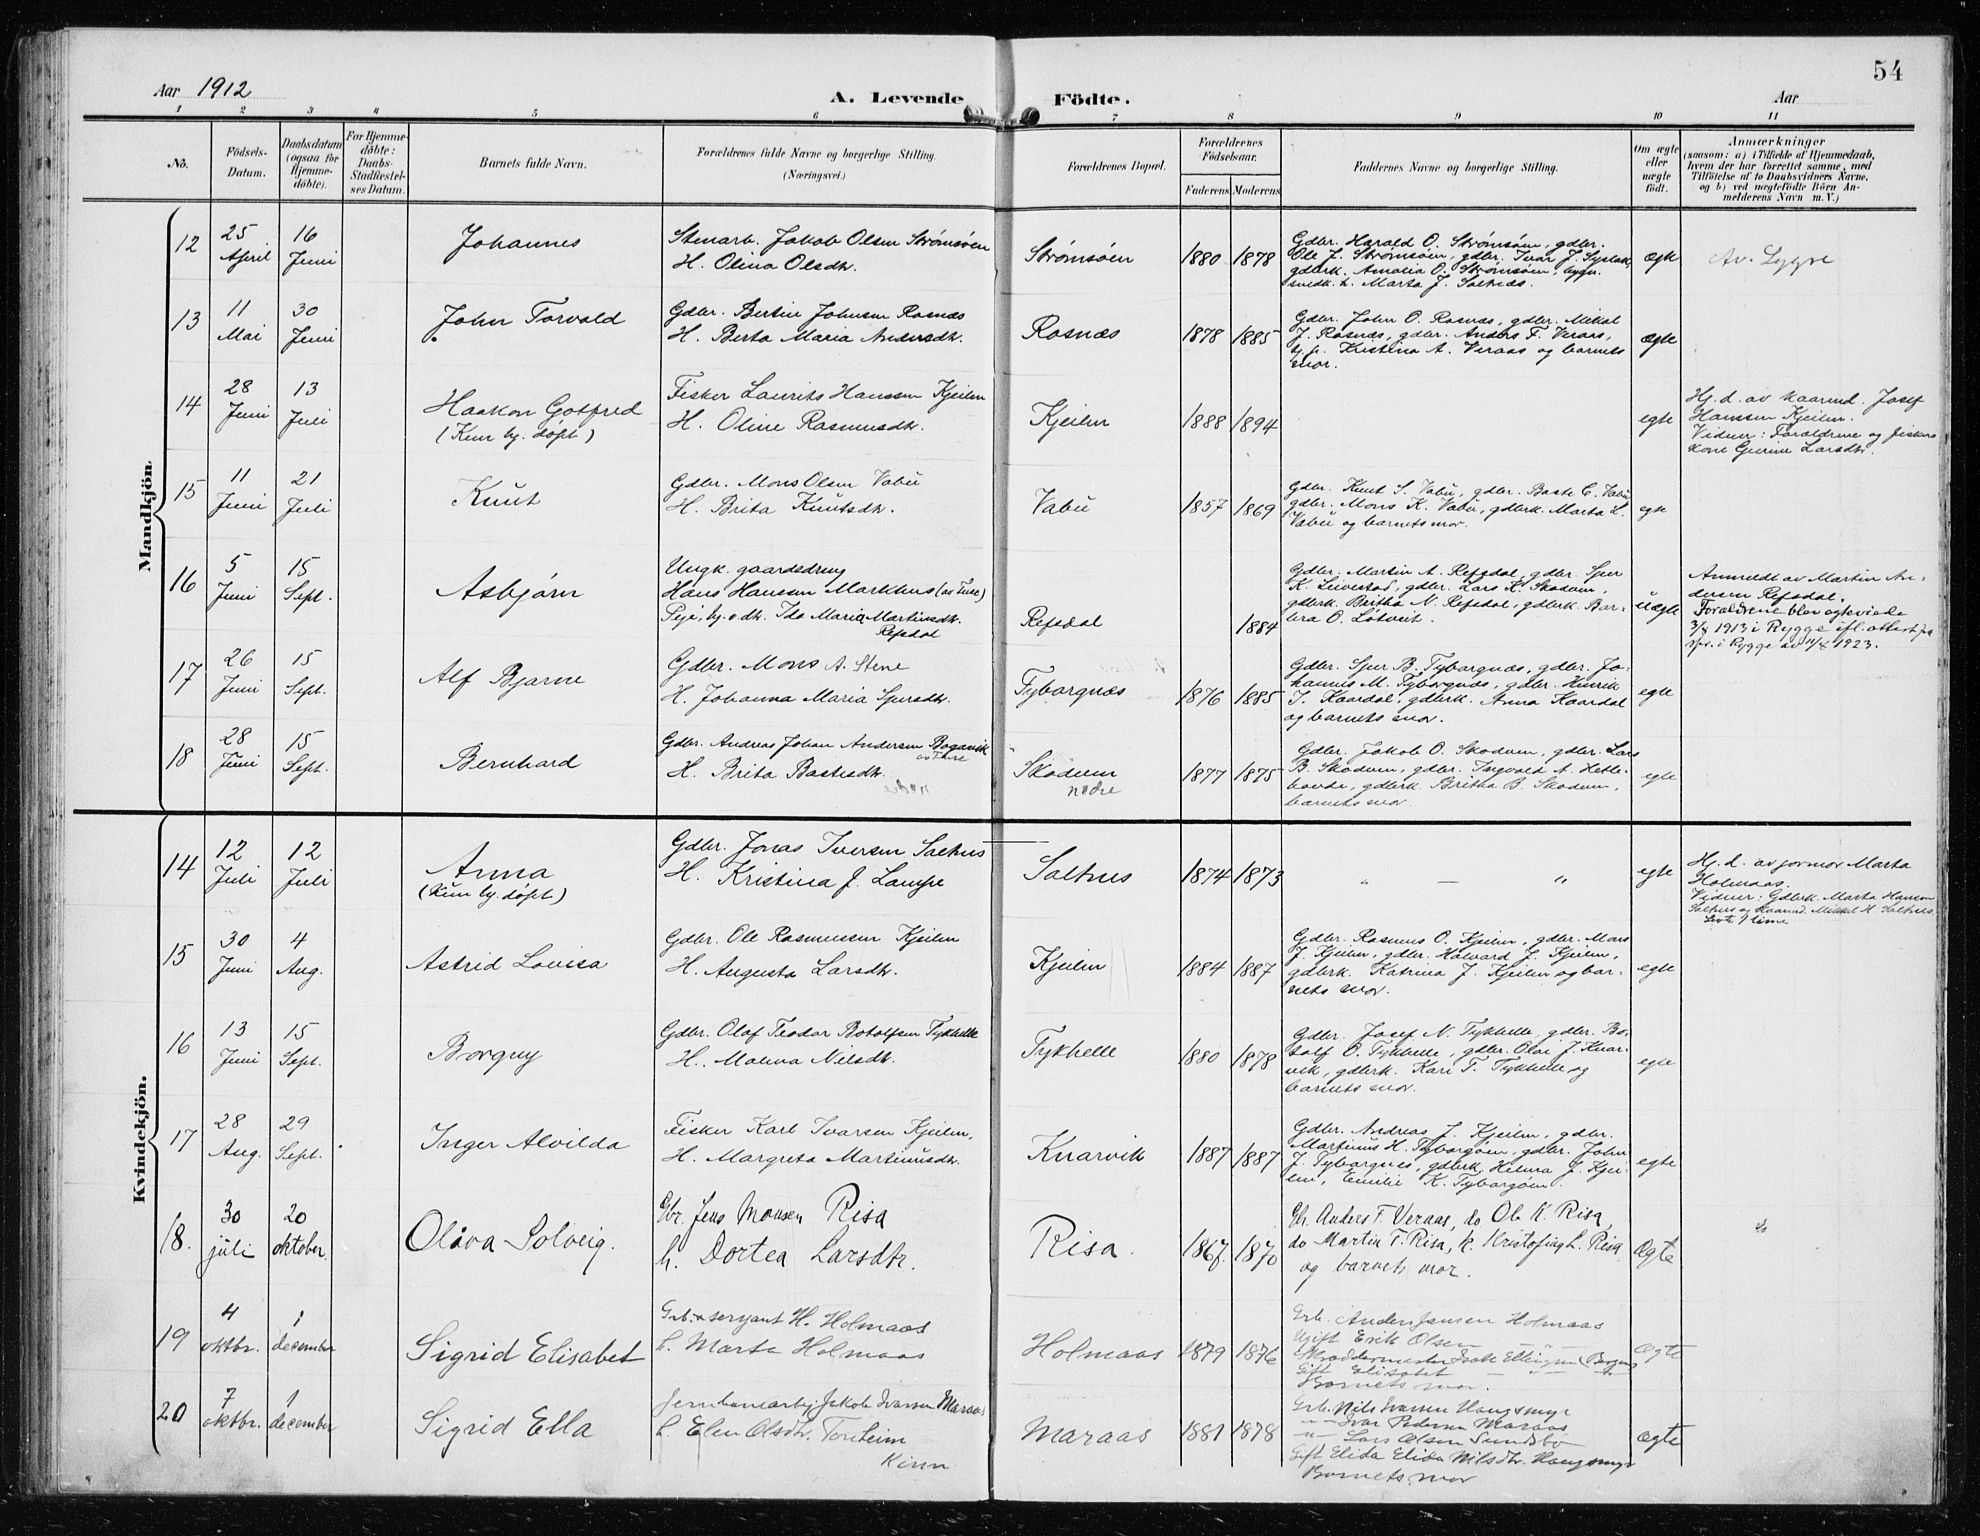 54
Aar 1912 A. Levende Födte. Aar
1 2 3 4 5 6 7 8 9 10 11
No.
Födsels-
Datum.
Daabsdatum
(ogsaa for
Hjemme-
döbte).
For Hjemme-
döbte:
Daabs-
Stadfæstel-
ses Datum.
Barnets fulde Navn.
Forældrenes fulde Navne og borgerlige Stilling.
(Næringsvei.)
Forældrenes Bopæl.
Forældrenes
Födselsaar.
Faderens Moderens
Faddernes Navne og borgerlige Stilling.
Om ægte
eller
uægte
födt.
Anmærkninger
(saasom: a) i Tilfælde af Hjemmedaab,
hvem der har forrettet samme, med
Tilföielse af to Daabsvidners Navne,
og b) ved uægtefödte Börn An-
melderens Navn m. V.)
Mandkjön.
12
25
April
16
Juni
Johannes
Stenarb. Jakob Olsen Strømsøen
H. Olina Olsdtr.
Strømsøen
1880 1878
Gdbr. Harald O. Strømsøen, gdbr.
Ole J. Strømsøen, gdbr. Ivar J.
gdbrk. Amalia O. Strømsøen,
Marta J. Saltnæs.
ægte
Av. Lygre
13
11
Mai
30
Juni
John Torvald
Gdbr. Bertin Johnsen Rosnæs
H. Berta Maria Andersdtr.
Rosnæs
1878 1885
Gdbr. John O. Rosnæs, gdbr. Mikal
J. Rosnæs, gdbr. Anders F. Veraas,
Kristina A. Veraas og barnets
mor.
ægte
14
28
Juni
13
Juli
Haakon Gotfred
(Kun hj. døpt)
Fisker Laurits Hanssen Kjeilen
H. Oline Rasmusdtr.
Kjeilen
1888 1894
egte
Hj. d. av kaarmd. Josef
Hanssen Kjeilen.
Vidner: Forældrene og fisker
kone Gurine Larsdtr.
15
11
Juni
21
Juli
Knut
Gdbr. Mons Olsen Vabø
H. Brita Knutsdtr.
Vabø
1857 1869
Gdbr. Knut S. Vabø, gdbr. Baste C. Vabø
gdbr. Mons K. Vabø, gdbrk. Marta L.
Vabø og barnets mor.
egte
16
5
Juni
15
Sept.
Asbjørn
Ungk. gaardsdreng
Hans Hanssen Markhus
Pige, hj. o dtr. Ida Maria Martinsdtr.
Refsdal
Refsdal
1884
Gdbr. Martin A. Refsdal, gdbr. Sjur
K. Leivestad, gdbr. Lars K. Skodven,
gdbrk. Britha N. Refsdal, gdbrk. Bar-
bra O. Løtveit.
uegte
Anmeldt av Martin An-
dersen Refsdal.
Forældrene blev egteviede
3/8 1913 i Rygge ifl. attest fra
spr. i Rygge av 11/8 1923.
17
26
Juni
15
Sept.
Alf Bjarne
Gdbr. Mons A. Stene
H. Johanna Maria Sjursdtr.
Tyborgnæs
1876 1885
Gdbr. Sjur B. Tyborgnæs, gdbr. Jo-
hannes M. Tyborgnæs, gdbr. Henrik
J. Kaardal, gdbrk. Anna Kaardal
og barnets mor.
egte
18
28
Juni
15
Sept.
Bernhard
Gdbr. Andreas Johan Andersen Bogavik
H. Brita Bastesdtr.
Skodven
nedre
1877 1875
Gdbr. Jakob O. Skodven, gdbr. Lars
B. Skodven, gdbr. Ingvald A. Helle-
bovde, gdbrk. Britha B. Skodven,
barnets mor.
egte
Kvindekjön.
14
12
Juli
12
Juli
Anna
(Kun hj. døpt)
Gdbr. Jonas Iversen Salthus
H. Kristina J. Lampe
Salthus
1874 1873
" — "
egte
Hj. d. av jormor Marta
Holmaas.
Vidner: Gdbrk. Marta Hansen
Salthus og kaarmd. Mikkel H. Salthus.
Levte 1 time
15
30
Juni
4
Aug.
Astrid Lovisa
Gdbr. Ole Rasmussen Kjeilen
H. Augusta Larsdtr.
Kjeilen
1884 1887
Gdbr. Rasmus O. Kjeilen, gdbr. Mars
J. Kjeilen, gdbr. Halvard J. Kjeilen,
gdbrk. Katrina J. Kjeilen og bar-
nets mor.
egte
16
13
Juni
15
Sept.
Borguy
Gdbr. Olaf Teodor Botolfsen Tykhelle
H. Malena Nilsdtr.
Tykhelle
1880 1878
Gdbr. Josef N. Tykhelle, gdbr. Bo-
tolf O. Tykhelle, gdbr. Olai J. Knar-
vik, gdbrk. Kari T. Tykhelle og
barnets mor.
egte
17
28
Aug.
29
Sept.
Inger Alvilda
Fisker Karl Ivarsen Kjeilen,
H. Margreta Martinusdtr.
Knarvik
1887 1887
Gdbr. Andreas J. Kjeilen, gdbr.
Martinus H. Tyborgøen, gdbr. John
J. Tyborgnes, gdbrk. Helena J. Kjei-
len, Emilie K. Tyborgøen.
egte
18.
30
juli
20
oktober.
Olava Solveig.
Gbr. Jens Monsen Risa
h. Dortea Larsdtr.
Risa.
1867. 1870
Gbr. Anders F. Veraas, do Ole K. Risa,
do Martin T. Risa, k. Kristofina L. Risa
og barnets mor.
ægte
19
4
oktbr.
1
december
Sigrid Elisabet
Grb. + sersjant H. Holmaas
h. Marta Holmaas
Holmaas
1879 1876
Grb. Anders Jansen Holmaas
Ugift Erik Olsen "
Skræddermester Isak Ellingsen (Bergen)
Gift Elisabet — " —
Barnets mor.
ægte
20
7
oktbr.
1
december
Sigrid Ella
Jernbanearb. Jakob Ivarsen Maraas
h. Elen Olsdtr. Torheim
Kinn
Maraas
1881 1878
Grb. Nils Ivarsen Haugsmyr
—"— Ivar Pedersen Maraas
—"— Lars Olsen Sundsbø
Gift Elida Nilsdtr. Haugsmyr
Barnets mor
ægte